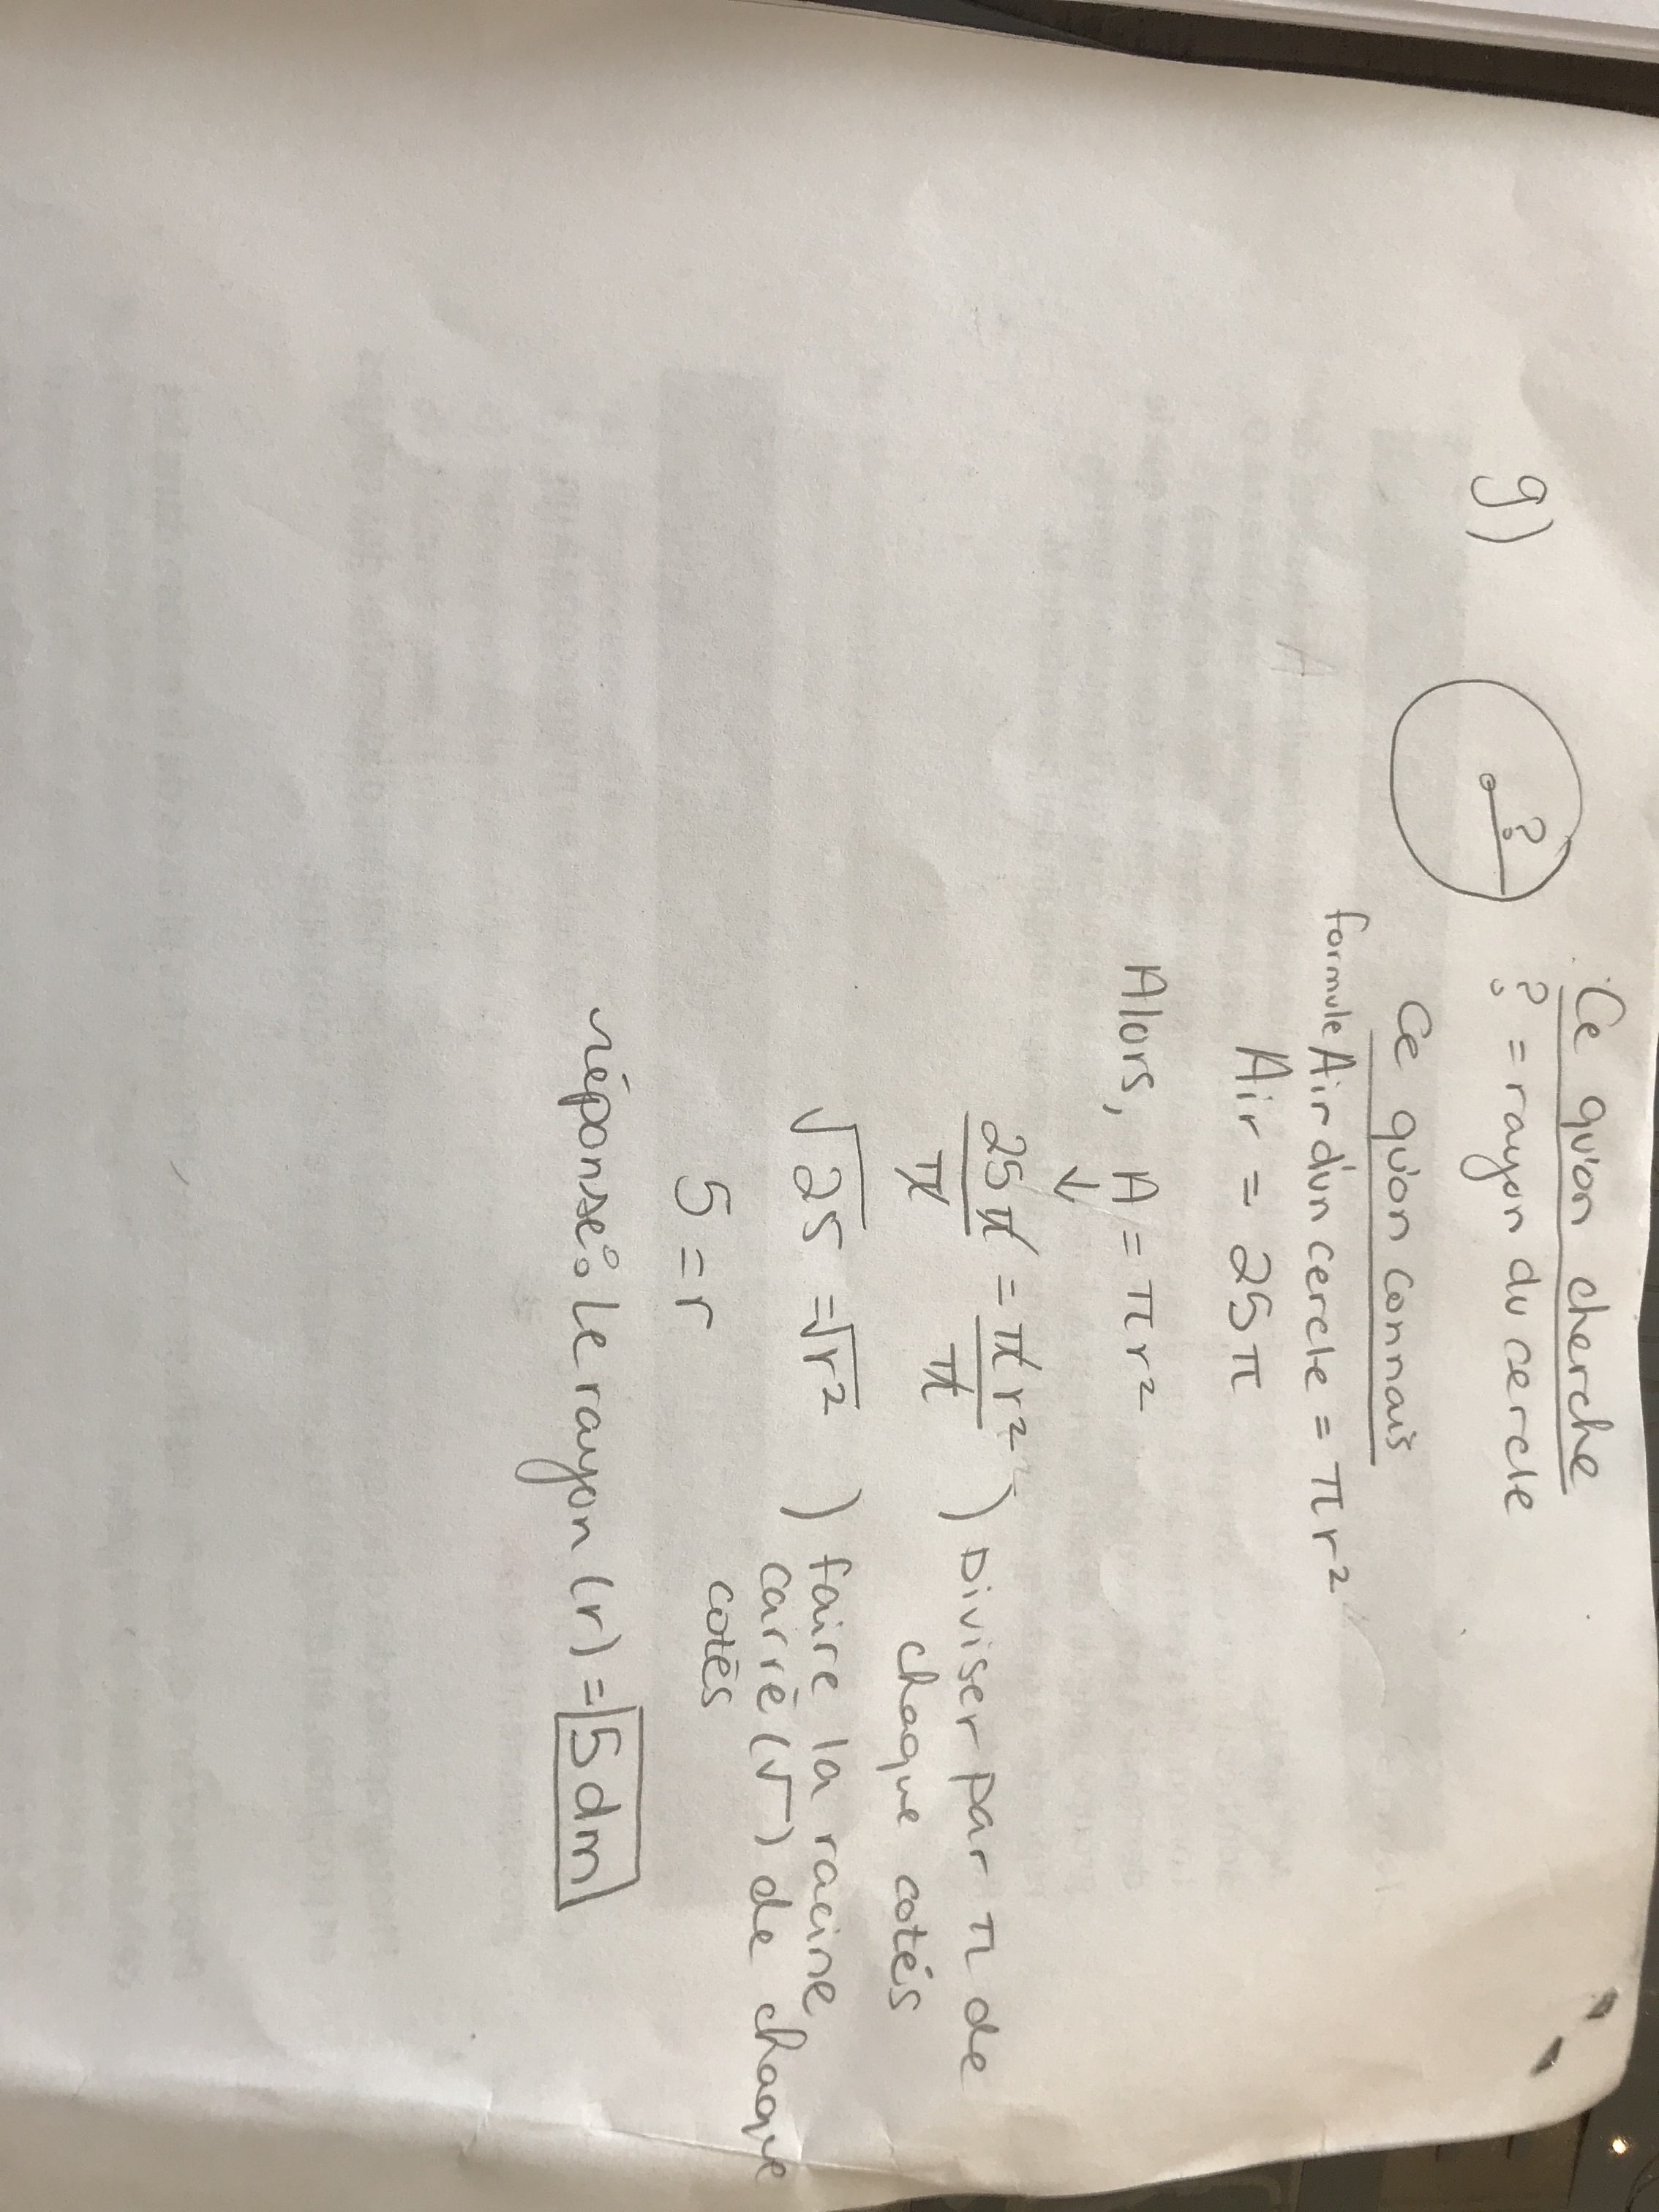 g)
?
Ce qu'on cherche
? = rayon du cercle
Ce qu'on connais
formule Air d'un cercle = πr²
Air = 25π
Alors, A = πr²
↓
25π/π = πr²/π ) Diviser par π de
chaque cotés
√25 = √r² ) faire la racine
carré (√) de chaque
cotés
5 = r
réponse: Le rayon (r) = 5 dm